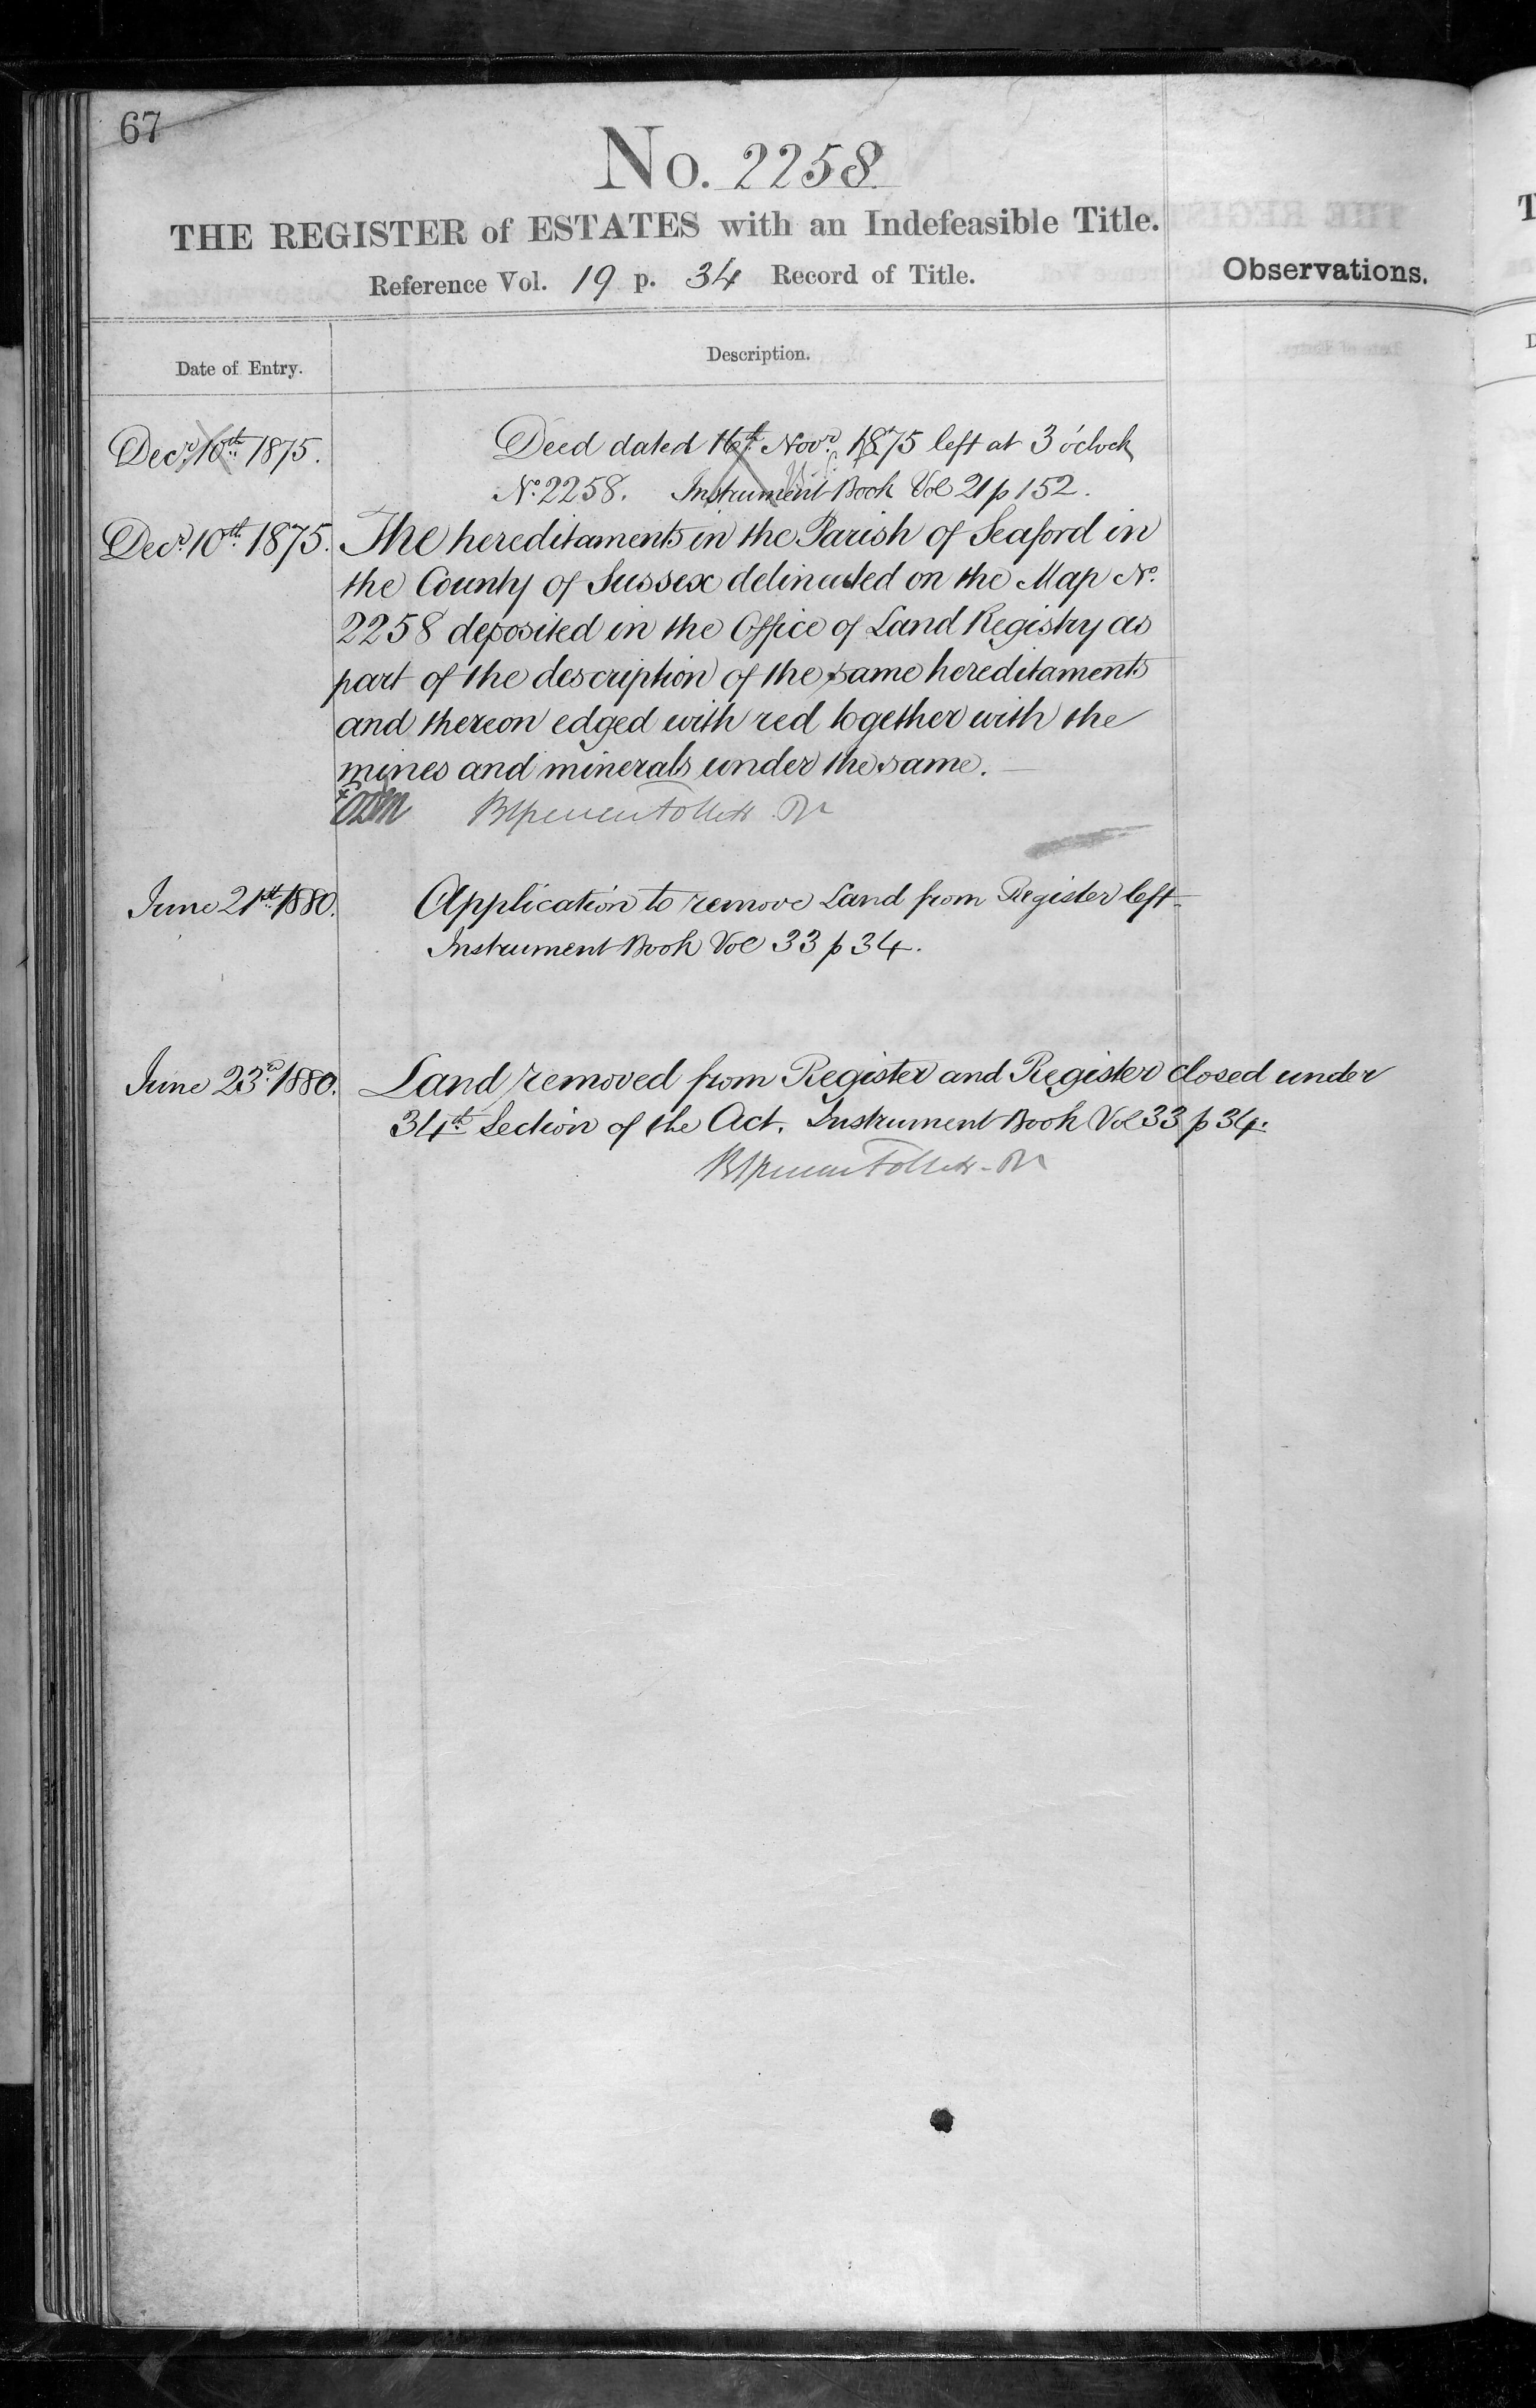 67
No. 2258.
THE REGISTER of ESTATES with an Indefeasible Title.
Reference Vol. 19 p. 34 Record of Title.
Observations.
Date of Entry.
Description.
Decr. 10th. 1875. Deed dated 16th. Novr. 1875 left at 3 o'clock
No. 2258. Instrument Book Vol 21 p 152.
Decr. 10th. 1875. The hereditaments in the Parish of Seaford in
the County of Sussex delineated on the Map No.
2258 deposited in the Office of Land Registry as
part of the description of the same hereditaments
and thereon edged with red together with the
mines and minerals under the same.
June 21st. 1880. Application to remove Land from Register left
Instrument Book Vol 33 p 34.
June 23rd. 1880. Land removed from Register and Register closed under
34th. Section of the Act. Instrument Book Vol 33 p 34.